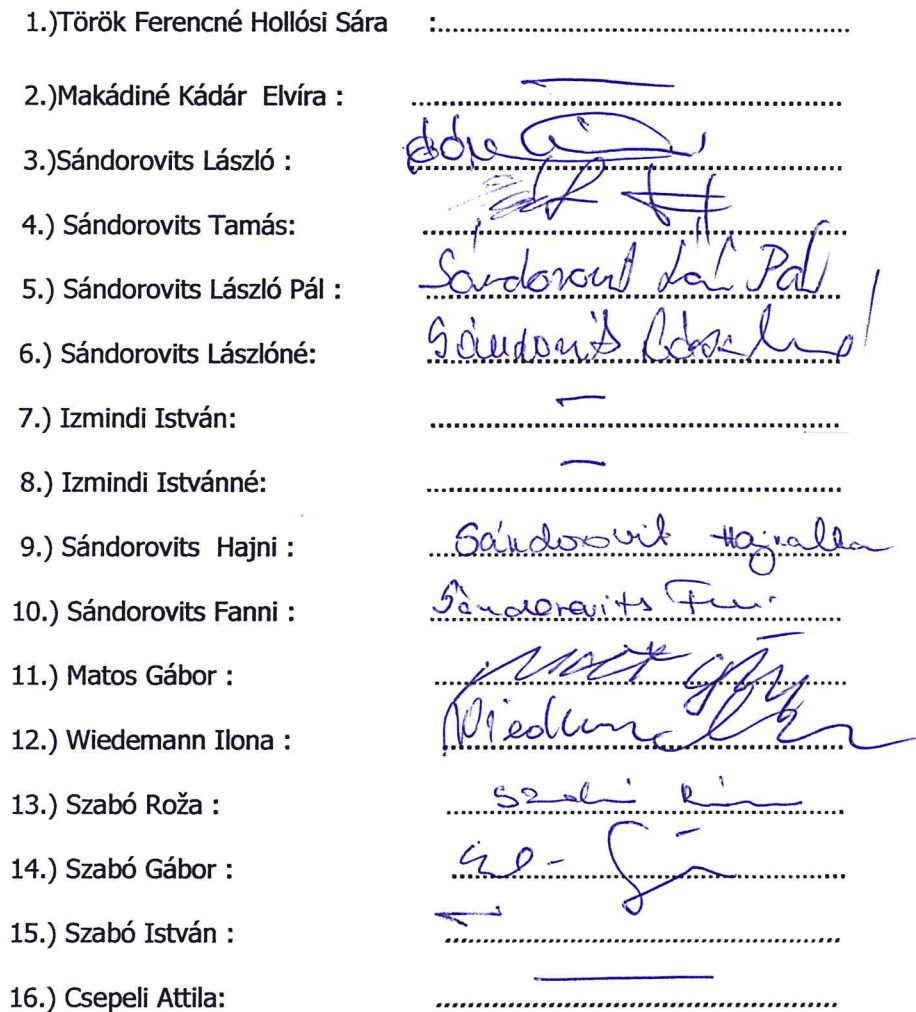 1.)Török Ferencné Hollósi Sára :..........................................................
2.)Makádiné Kádár Elvíra : .............................................................
3.)Sándorovits László : .............................................................
4.) Sándorovits Tamás: .............................................................
5.) Sándorovits László Pál : Sándorovit Lá Pál
6.) Sándorovits Lászlóné: Sándorvits
7.) Izmindi István: ..........................................................
8.) Izmindi Istvánné: ..........................................................
9.) Sándorovits Hajni : Sándorovit Hajnalka
10.) Sándorovits Fanni : Sándorovits
11.) Matos Gábor : .............................................................
12.) Wiedemann Ilona : .............................................................
13.) Szabó Roža : .............................................................
14.) Szabó Gábor : .............................................................
15.) Szabó István : .............................................................
16.) Csepeli Attila: .............................................................